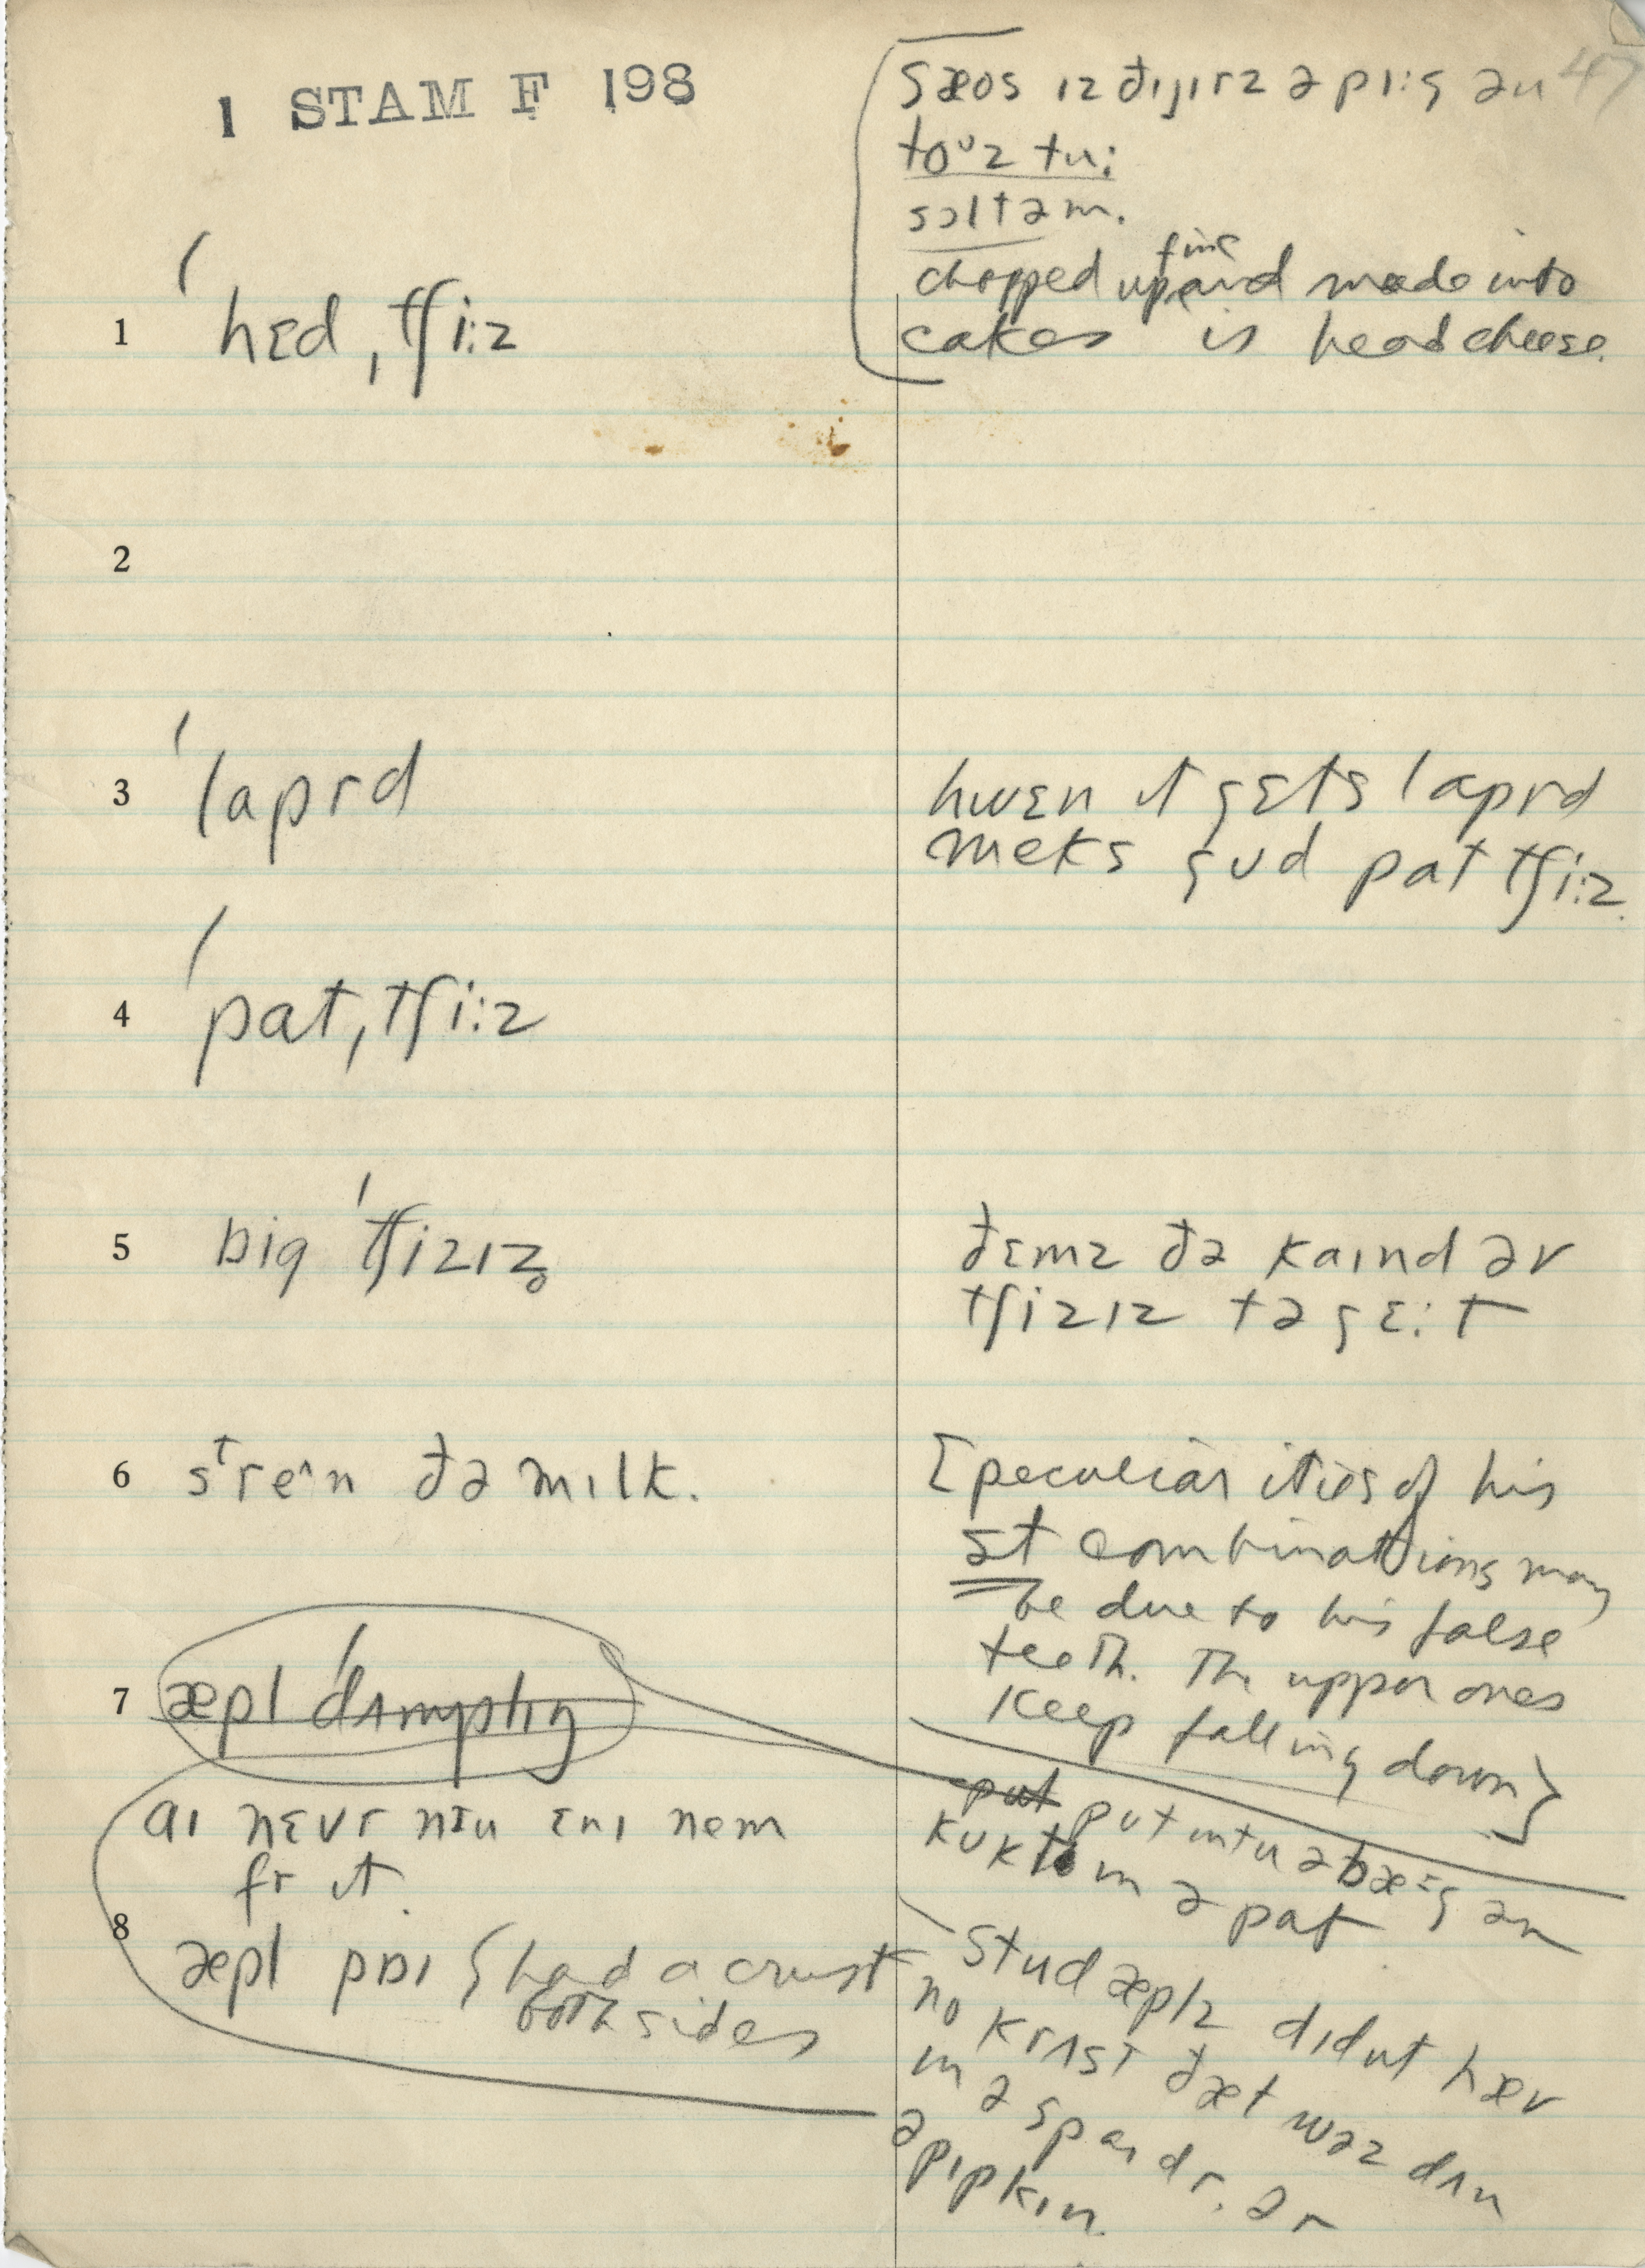 1 STAM F 198
47
sæos ız ðıȷırz ə pı:g ən
toᵘz tu:
sɔltəm.
chopped up fine and made into
cakes is head cheese.
1 ˈhɛd ˌtʃi:z
2
3 ˈlaprd
hwɛn ıt gɛts laprd
meks gʊd pat tʃi:z.
4 ˈpatˌtʃi:z
5 big ˈtʃizız̥
ðɛmz ðə kaınd əv
tʃizız tə gɛ:t
6 sᵗre^n ðə mılk.
[peculiarities of his
st combinations may
be due to his false
teeth. The upper ones
keep falling down}
7 æpl ˈdʌmplıŋ
put put ıntu ə bæ:g ən
kʊkt ın ə pat
aı nɛvr nɪu ɛnı nem
fr ıt.
8 æpl paı {had a crust
both sides
stud æplz dıdnt hæv
no krʌst ðæt wəz dʌn
ın ə spaıdr. ər
ə pıpkın.